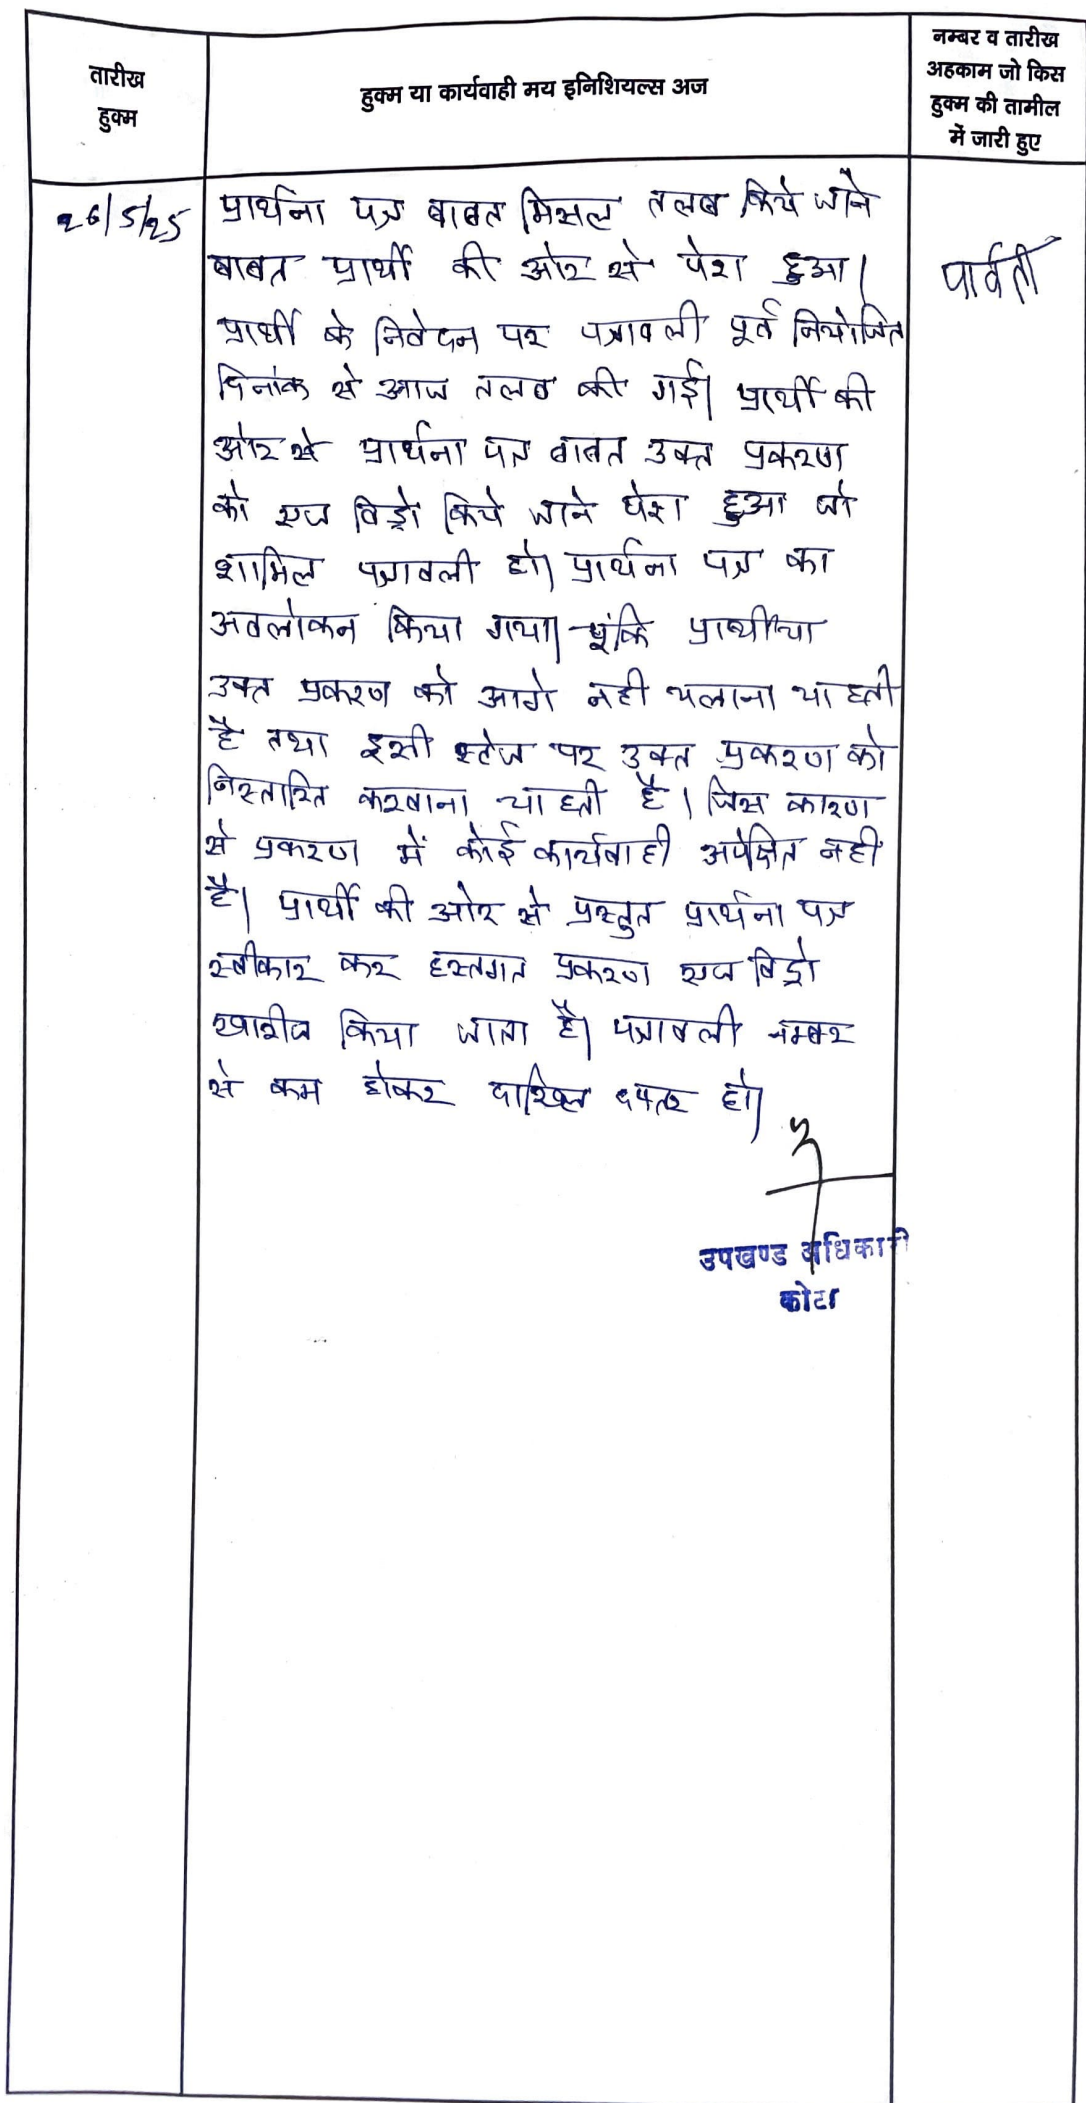 तारीख
हुक्म
हुक्म या कार्यवाही मय इनिशियल्स अज
नम्बर व तारीख
अहकाम जो किस
हुक्म की तामील
में जारी हुए
26/5/25
प्रार्थना पत्र बाबत मिसल तलब किये जाने
बाबत प्रार्थी की ओर से पेश हुआ।
प्रार्थी के निवेदन पर पत्रावली पूर्व नियोजित
दिनांक से आज तलब की गई। प्रार्थी की
ओर से प्रार्थना पत्र बाबत उक्त प्रकरण
को एज विड्रो किये जाने पेश हुआ जो
शामिल पत्रावली हो। प्रार्थना पत्र का
अवलोकन किया गया। चूंकि प्रार्थीया
उक्त प्रकरण को आगे नही चलाना चाहती
है तथा इसी स्टेज पर उक्त प्रकरण को
निस्तारित करवाना चाहती है। जिस कारण
से प्रकरण में कोई कार्यवाही अपेक्षित नही
है। प्रार्थी की ओर से प्रस्तुत प्रार्थना पत्र
स्वीकार कर हस्तगत प्रकरण एज विड्रो
खारीज किया जाता है। पत्रावली नम्बर
से कम होकर दाखिल दफ्तर हो।
पार्वती
उपखण्ड अधिकारी
कोटा